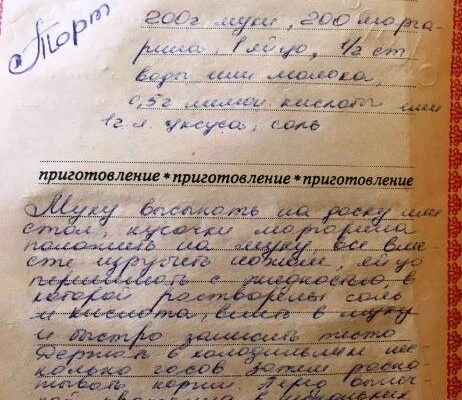 Торт
200г муки, 200 марга-
рина, 1 яйцо, 1/2 ст
воды или молока,
0,5г лимон кислоты или
1г л. уксуса, соль
приготовление * приготовление * приготовление
Муку высыпать на доску или
стол, кусочки маргарина
положить на муку все вме-
сте изрубить ножом, яйцо
перемешать с жидкостью в
которой растворены соль
и кислота, влить в муку
и быстро замесить тесто
Держать в холодильнике нес-
колько часов затем раска
тывать коржи. Перед выпеч
кой